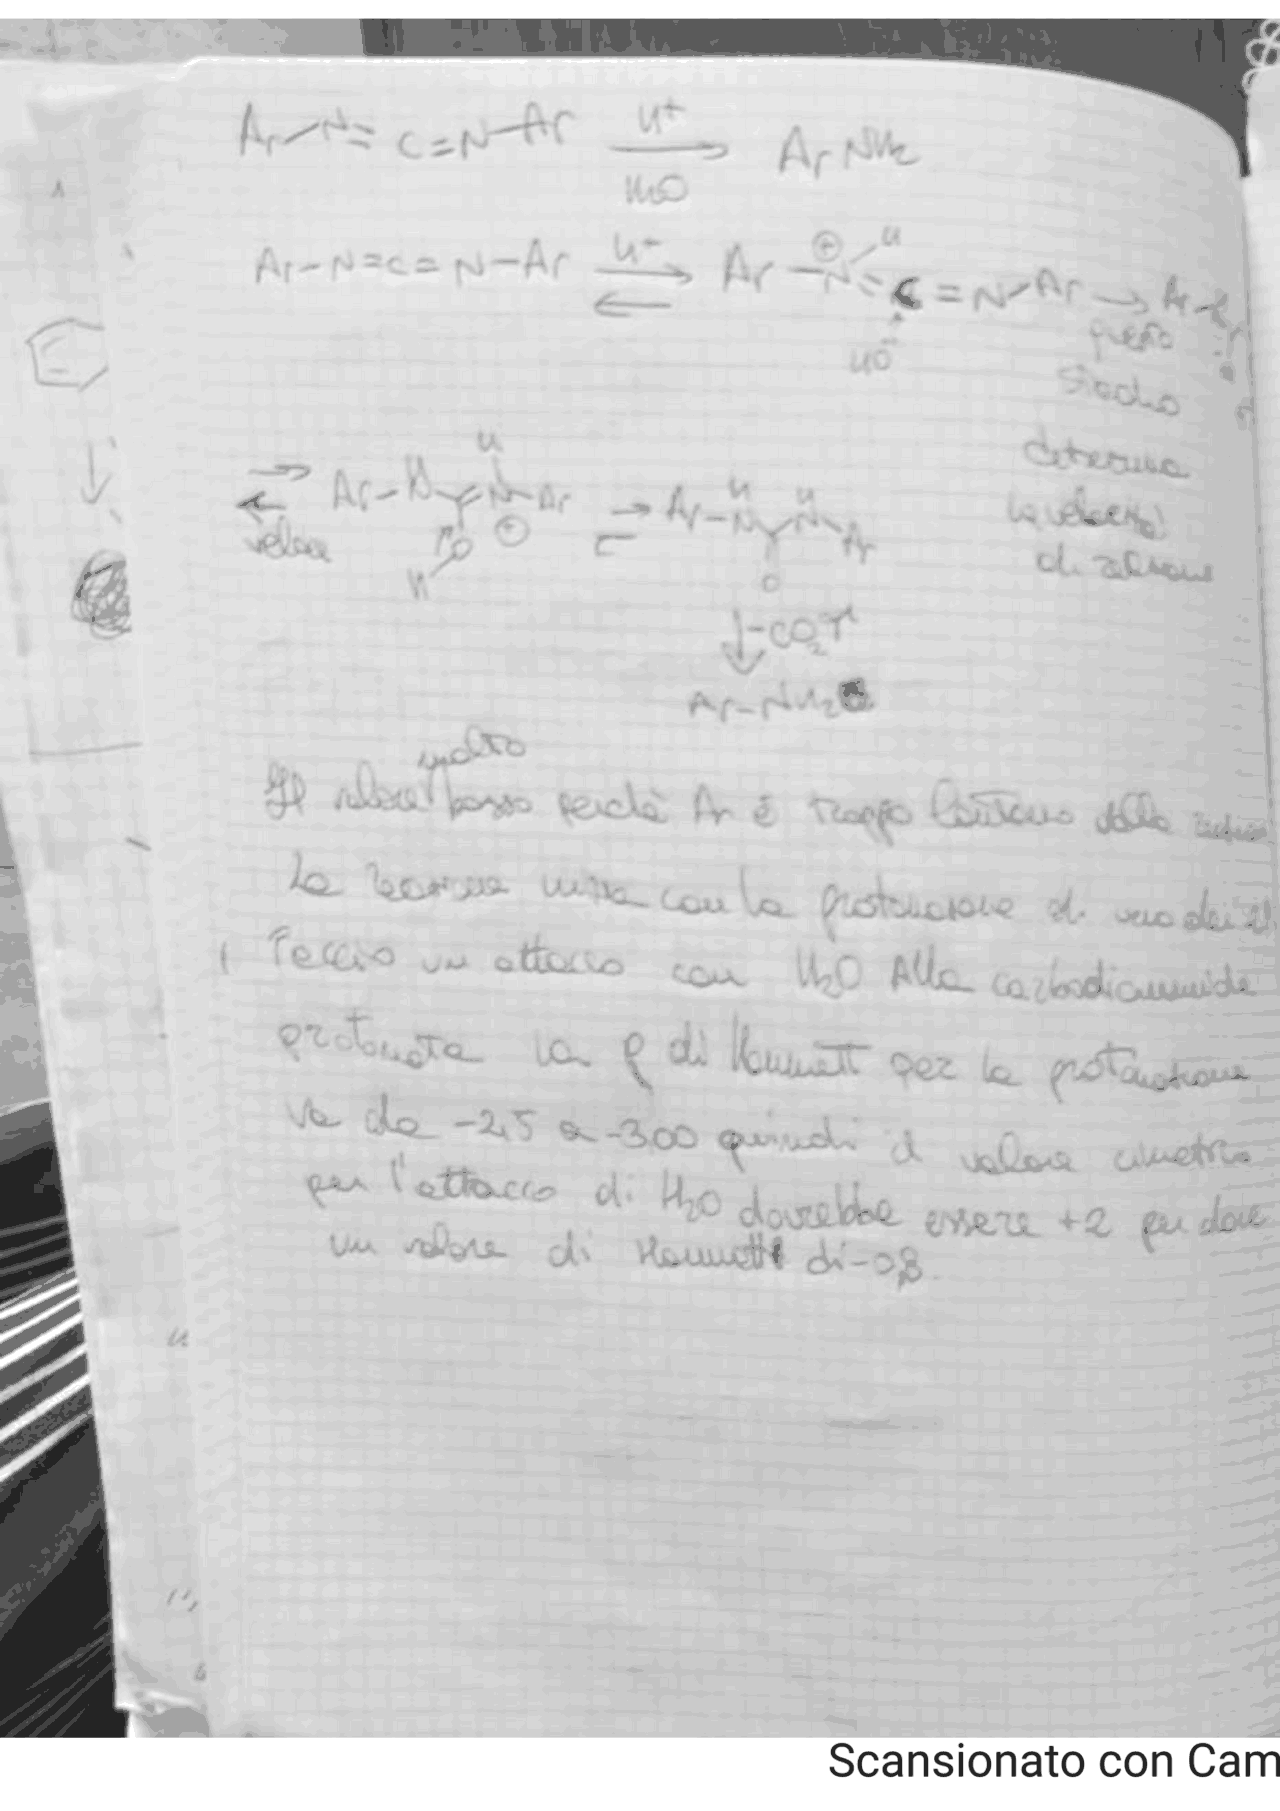 Ar-N=C=N-Ar H+ H2O ArNH2
Ar-N=C=N-Ar H+ Ar-N=C=N-Ar
H ⊕
HO
questo
stadio
determina
la velocità
di reazione
veloce
Ar-N N-Ar
H ⊕
O
H
Ar-N N-Ar
H H
O
-CO2↑
Ar-NH2
molto
Il valore basso perchè Ar è troppo lontano dalla
La reazione inizia con la protonazione di uno dei
Faccio un attacco con H2O Alla carbodiammide
protonata la ρ di Hammett per la protonazione
va da -2,5 a -3,00 quindi il valore
per l'attacco di H2O dovrebbe essere +2 per dare
un valore di Hammett di -0,8
Scansionato con Cam